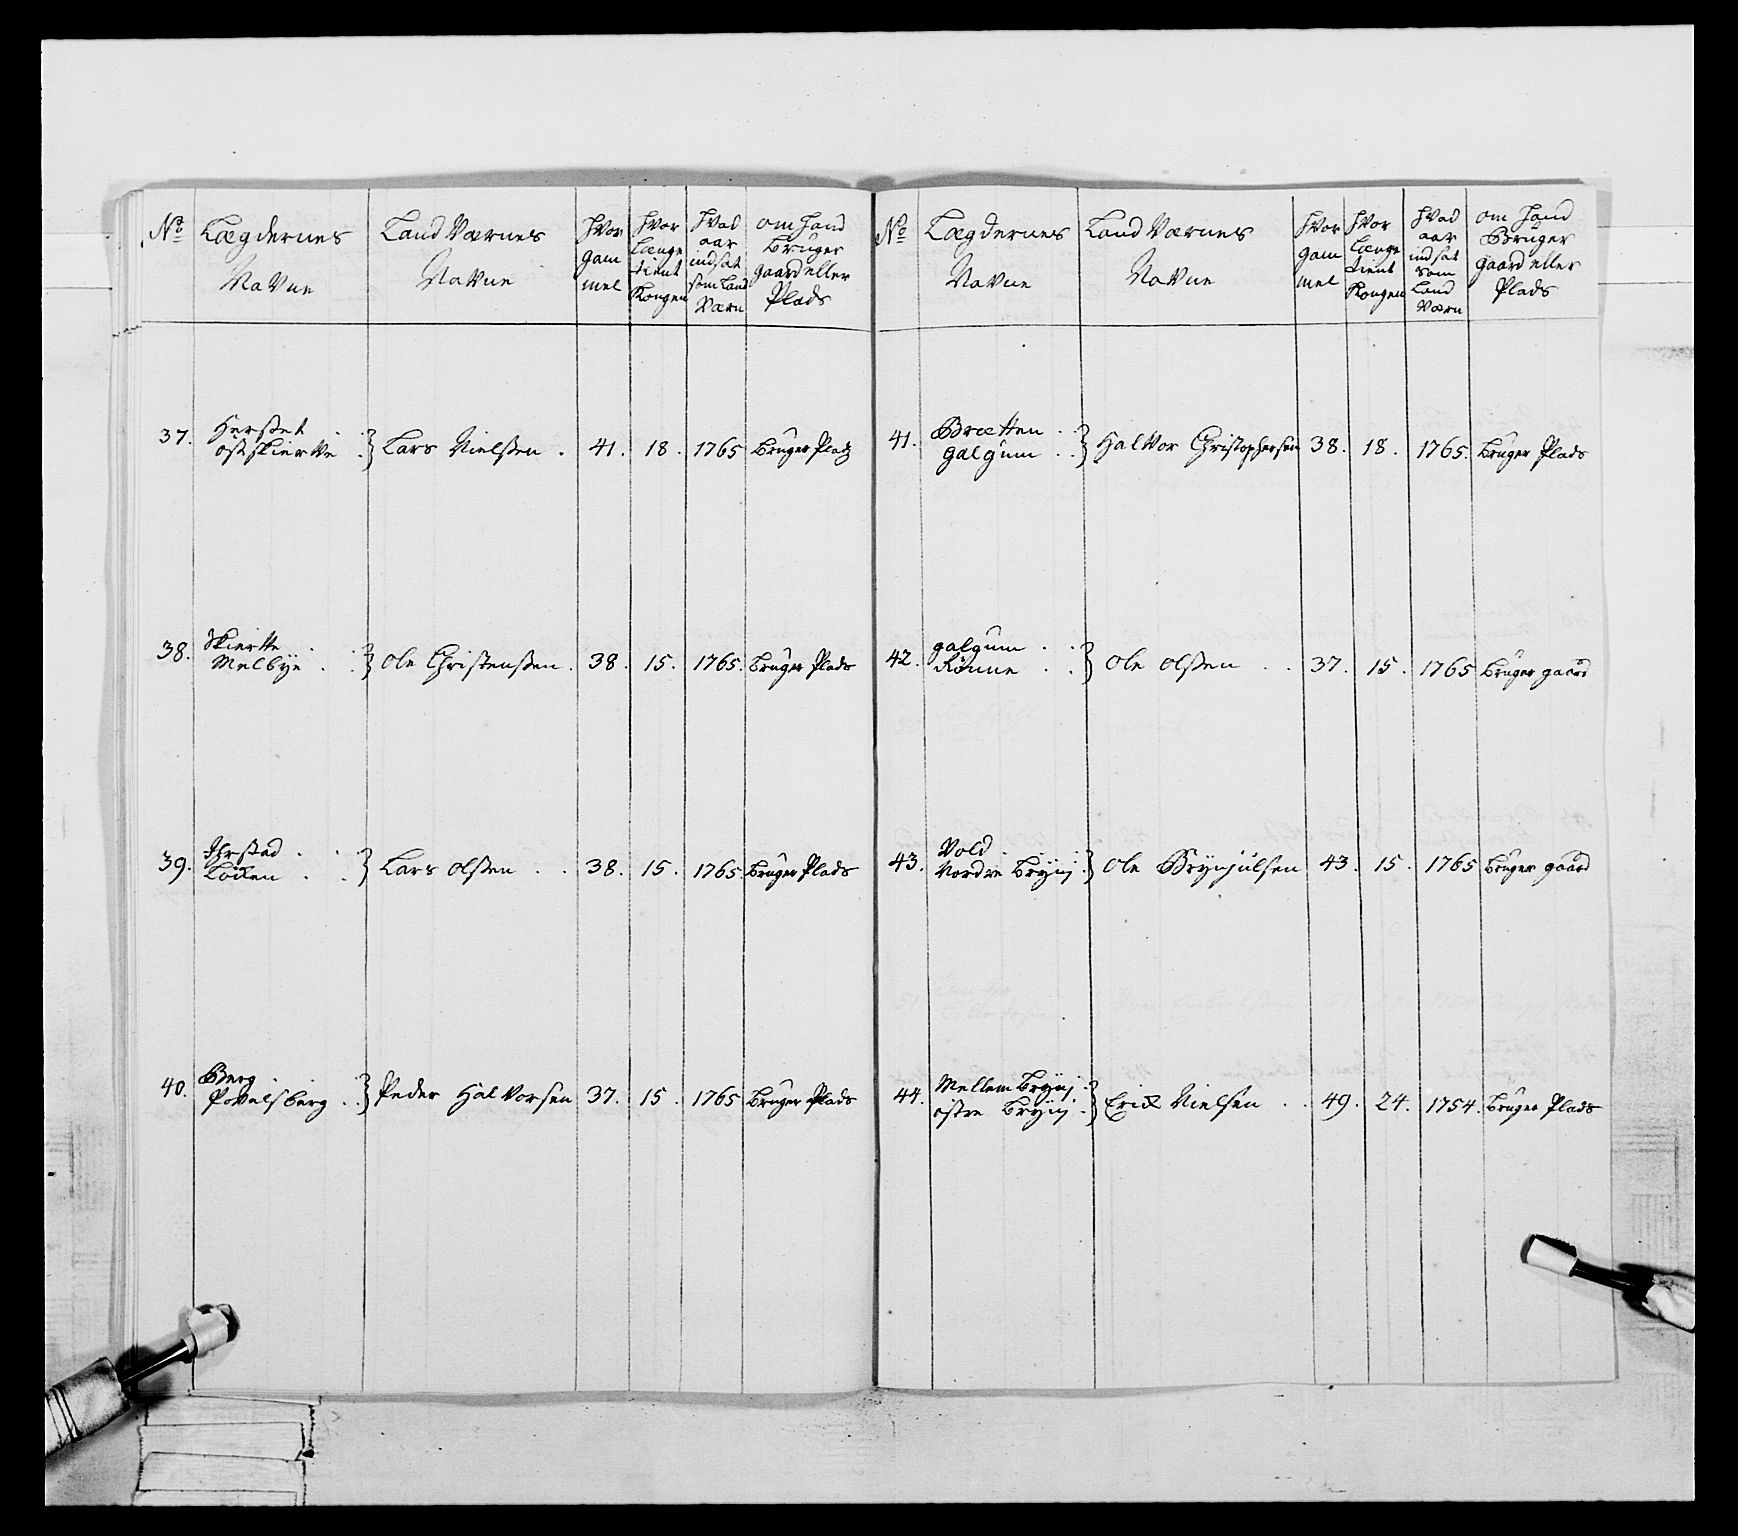 No Lægdernes Navne Land Værnes Navne Hvor gammel Hvor Længe tient Kongen Hvad aar indsat som Land Værn om Hand Bruger gaard eller Plads
37. Herstet . .
østskiertve . } Lars Nielsen . 41. 18. 1765 Bruger Plads
38. Skiertte . .
Melbye . . } Ole Christensen . 38. 15. 1765. Bruger Plads
39. Ihrstad . .
Löcken . . } Lars Olsen . . 38. 15. 1765. Bruger Plads
40. Berg . .
Povelsberg . . } Peder Halvorsen 37. 15. 1765 Bruger Plads
No Lægdernes Navne Land Værnes Navne Hvor gammel Hvor Længe tient Kongen Hvad aar indsat som Land Værn om Hand Bruger gaard eller Plads
41. Brætten . .
galgum . . } Halvor Christophersen 38. 18. 1765. Bruger Plads
42. galgum . .
Rønne . . } Ole Olsen . . 37. 15. 1765 Bruger gaard
43. Vold . .
Nordre Brynj . } Ole Brynjulsen 43. 15. 1765 Bruger gaard
44. Mellem Brynj .
østre Brynj . } Erick Nielsen . . 49. 24. 1754. Bruger Plads